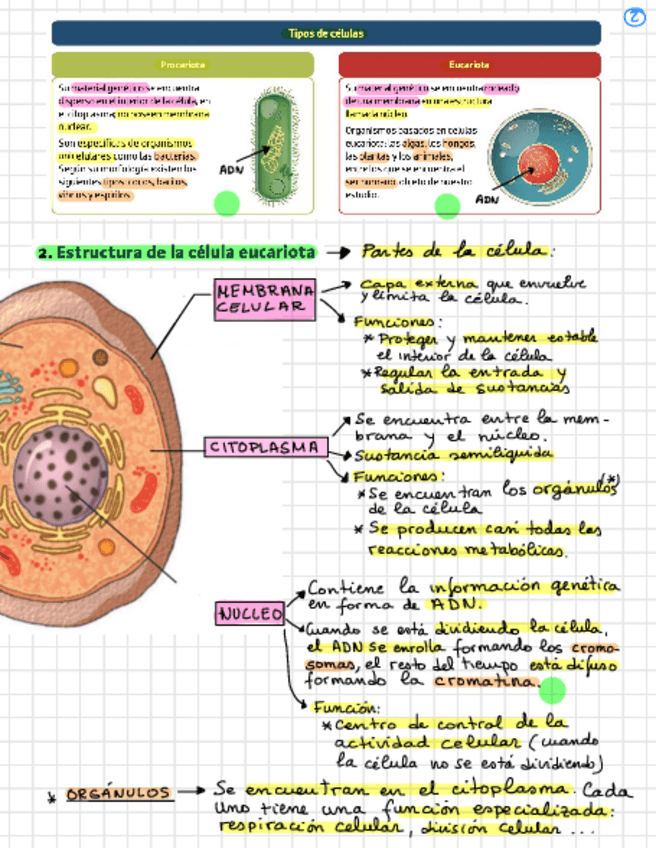 2
Tipos de células
Procariota
Su material genético se encuentra
disperso en el interior de la célula, en
el citoplasma; no posee membrana
nuclear.
Son específicas de organismos
unicelulares como las bacterias.
Según su morfología existen los
siguientes tipos: cocos, bacilos,
vibrios y espirilos.
ADN
Eucariota
Su material genético se encuentra rodeado
de una membrana en una estructura
llamada núcleo.
Organismos basados en células
eucariotas: las algas, los hongos,
las plantas y los animales,
entre los que se encuentra el
ser humano, objeto de nuestro
estudio.
ADN
2. Estructura de la célula eucariota → Partes de la célula:
MEMBRANA
CELULAR
Capa externa que envuelve
y limita la célula.
Funciones:
* Proteger y mantener estable
el interior de la célula
* Regular la entrada y
salida de sustancias
CITOPLASMA
Se encuentra entre la mem-
brana y el núcleo.
Sustancia semilíquida
Funciones:
* Se encuentran los orgánulos (*)
de la célula
* Se producen casi todas las
reacciones metabólicas.
NUCLEO
Contiene la información genética
en forma de ADN.
Cuando se está dividiendo la célula,
el ADN se enrolla formando los cromo-
somas, el resto del tiempo está difuso
formando la cromatina.
Función:
* Centro de control de la
actividad celular (cuando
la célula no se está dividiendo)
* ORGÁNULOS → Se encuentran en el citoplasma. Cada
uno tiene una función especializada:
respiración celular, división celular ...